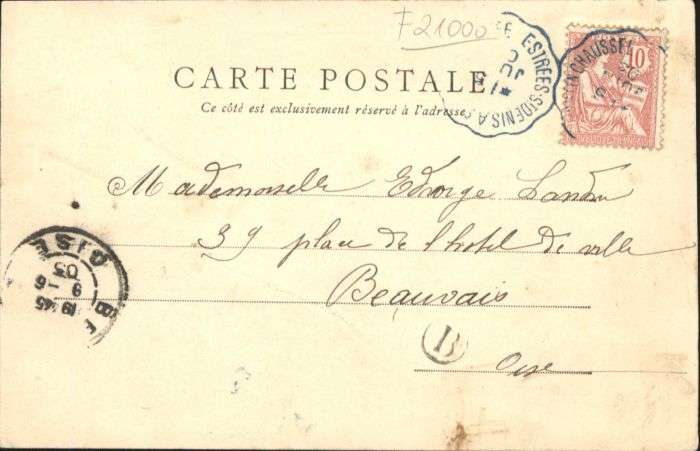 F21000
CARTE POSTALE
Ce côté est exclusivement réservé à l'adresse.
ESTRÉES-S-DENIS A
CHAUSSÉE
10
Mademoiselle Edwige Landru
39 place de l'hotel de ville
Beauvais
Oise
B
OISE
19 45
9 -6
03